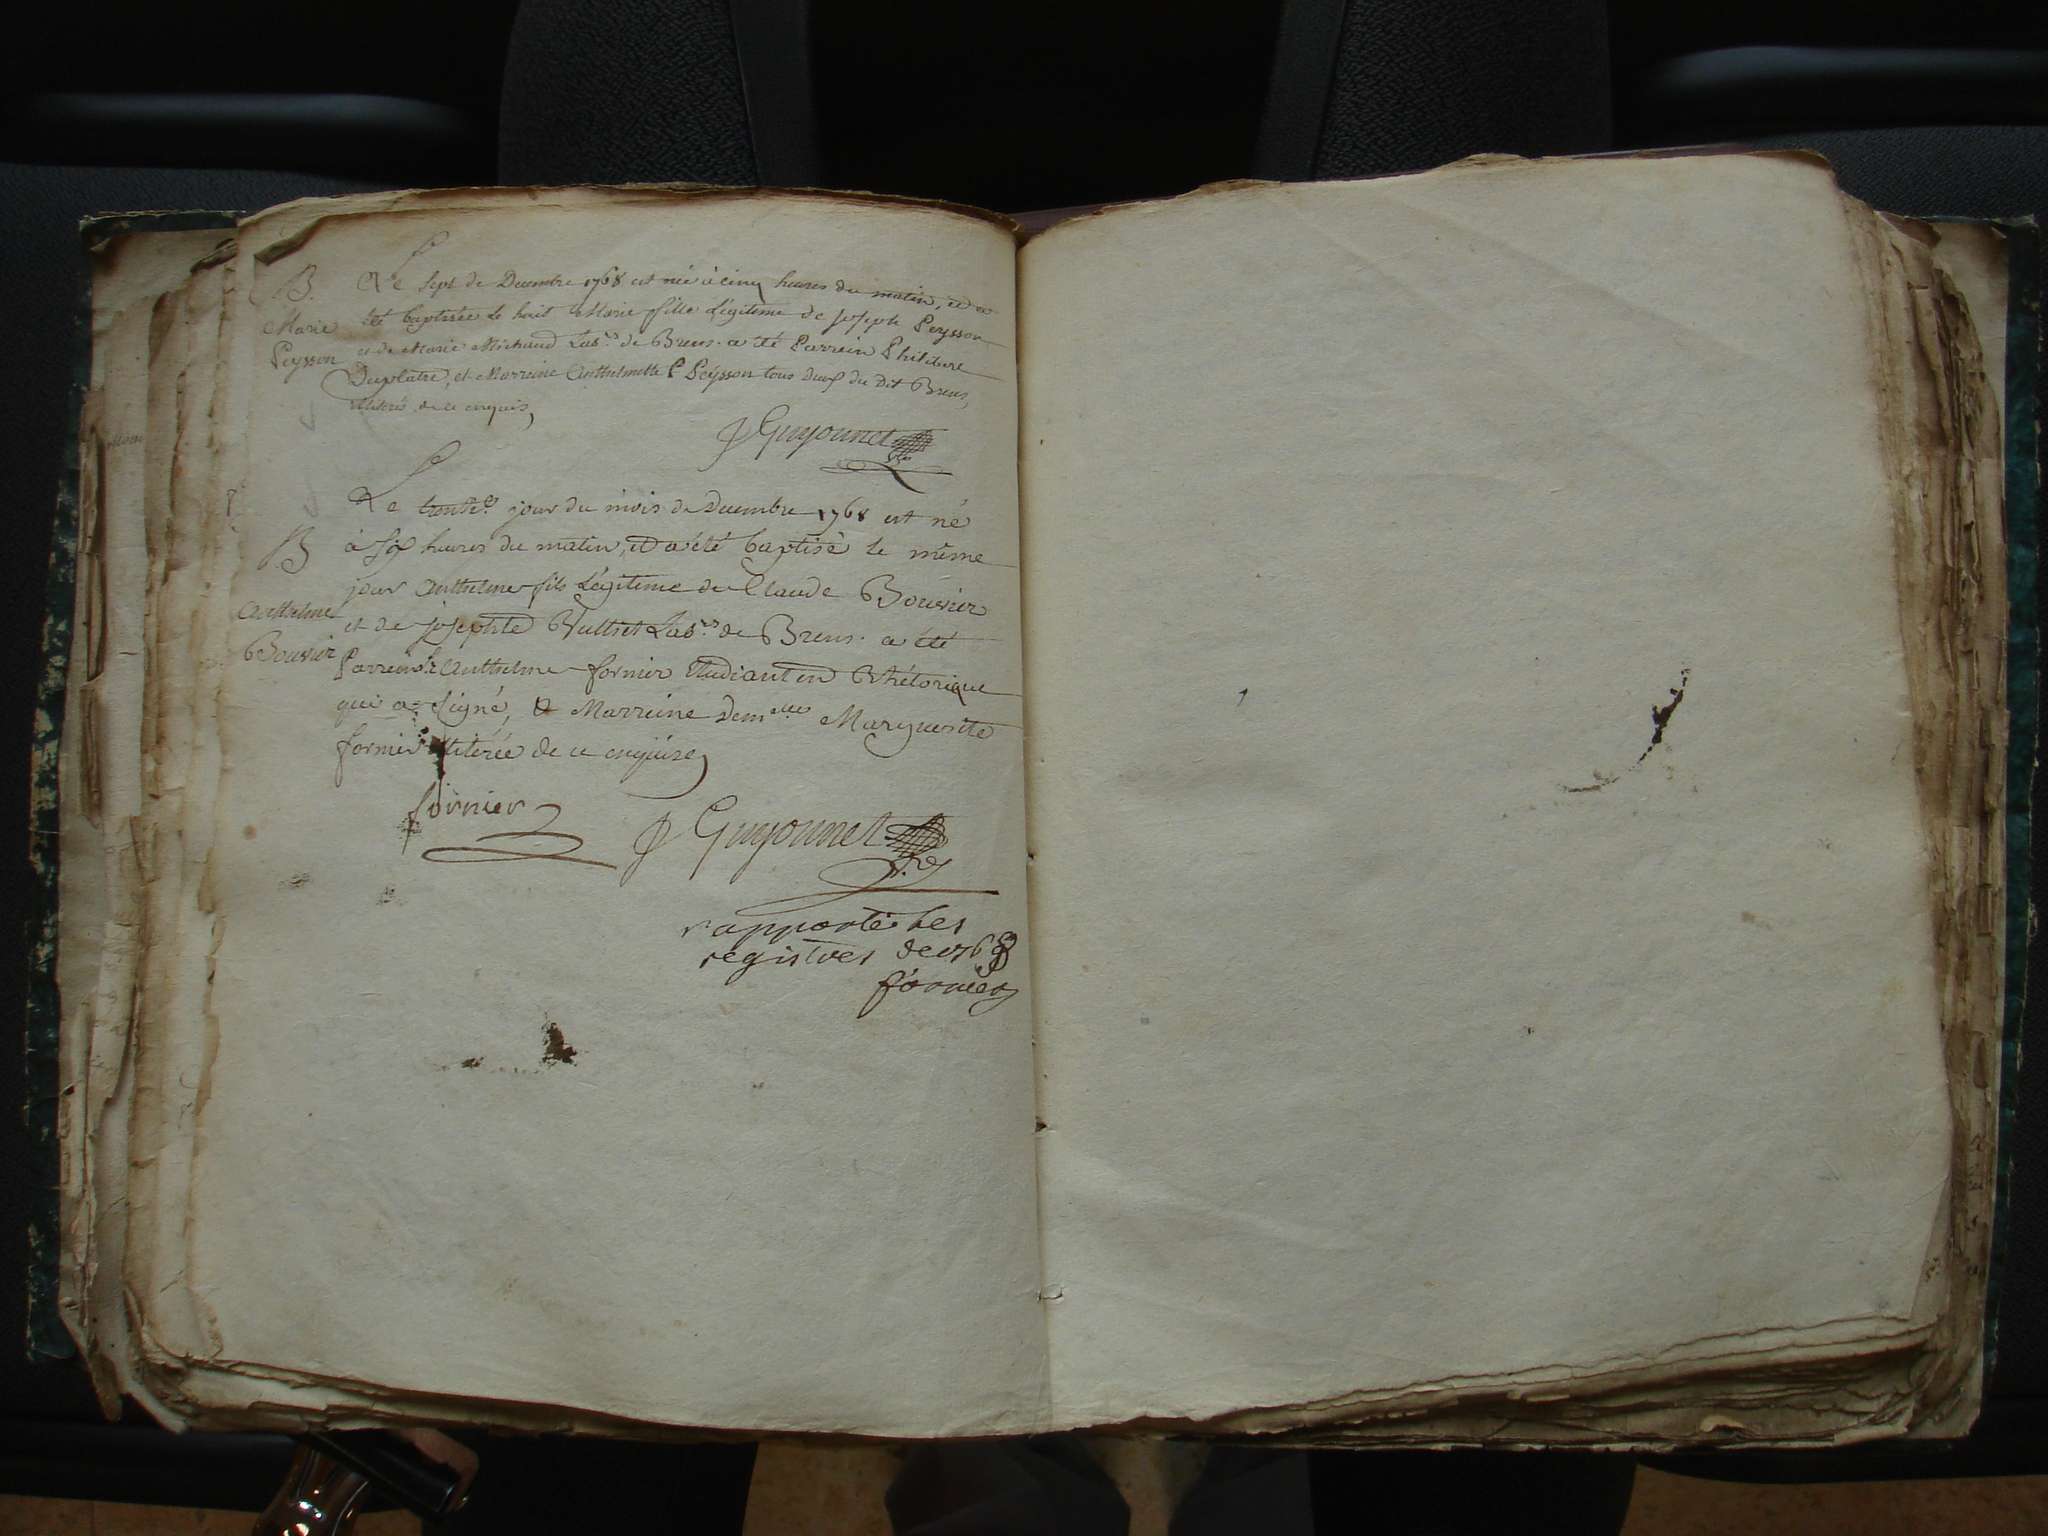 B. Le sept de Decembre 1768 est née à cinq heures du matin, et a
Marie été baptisée le huit Marie fille Légitime de joseph Peysson
Peysson et de Marie Michaud Lab.rs de Brens. a été Parrein Philibert
Duplatre, et Marreine Anthelmette Peysson tous deux du dit Brens,
illitérés de ce enquis,
Guyonnet
Le trente.e jour du mois de Decembre 1768 est né
B à six heures du matin, et a été baptisé le même
jour Anthelme fils Légitime de Claude Bouvier
Anthelme et de josephte Vulliet Lab.rs de Brens. a été
Bouvier Parrein Sr. Anthelme fornier Etudiant en Rhétorique
qui a signé, & Marreine Dem.elle Marguerite
fornier illitérée de ce enquise,
fornier
Guyonnet
rapporté les
registres de 1768
fornier